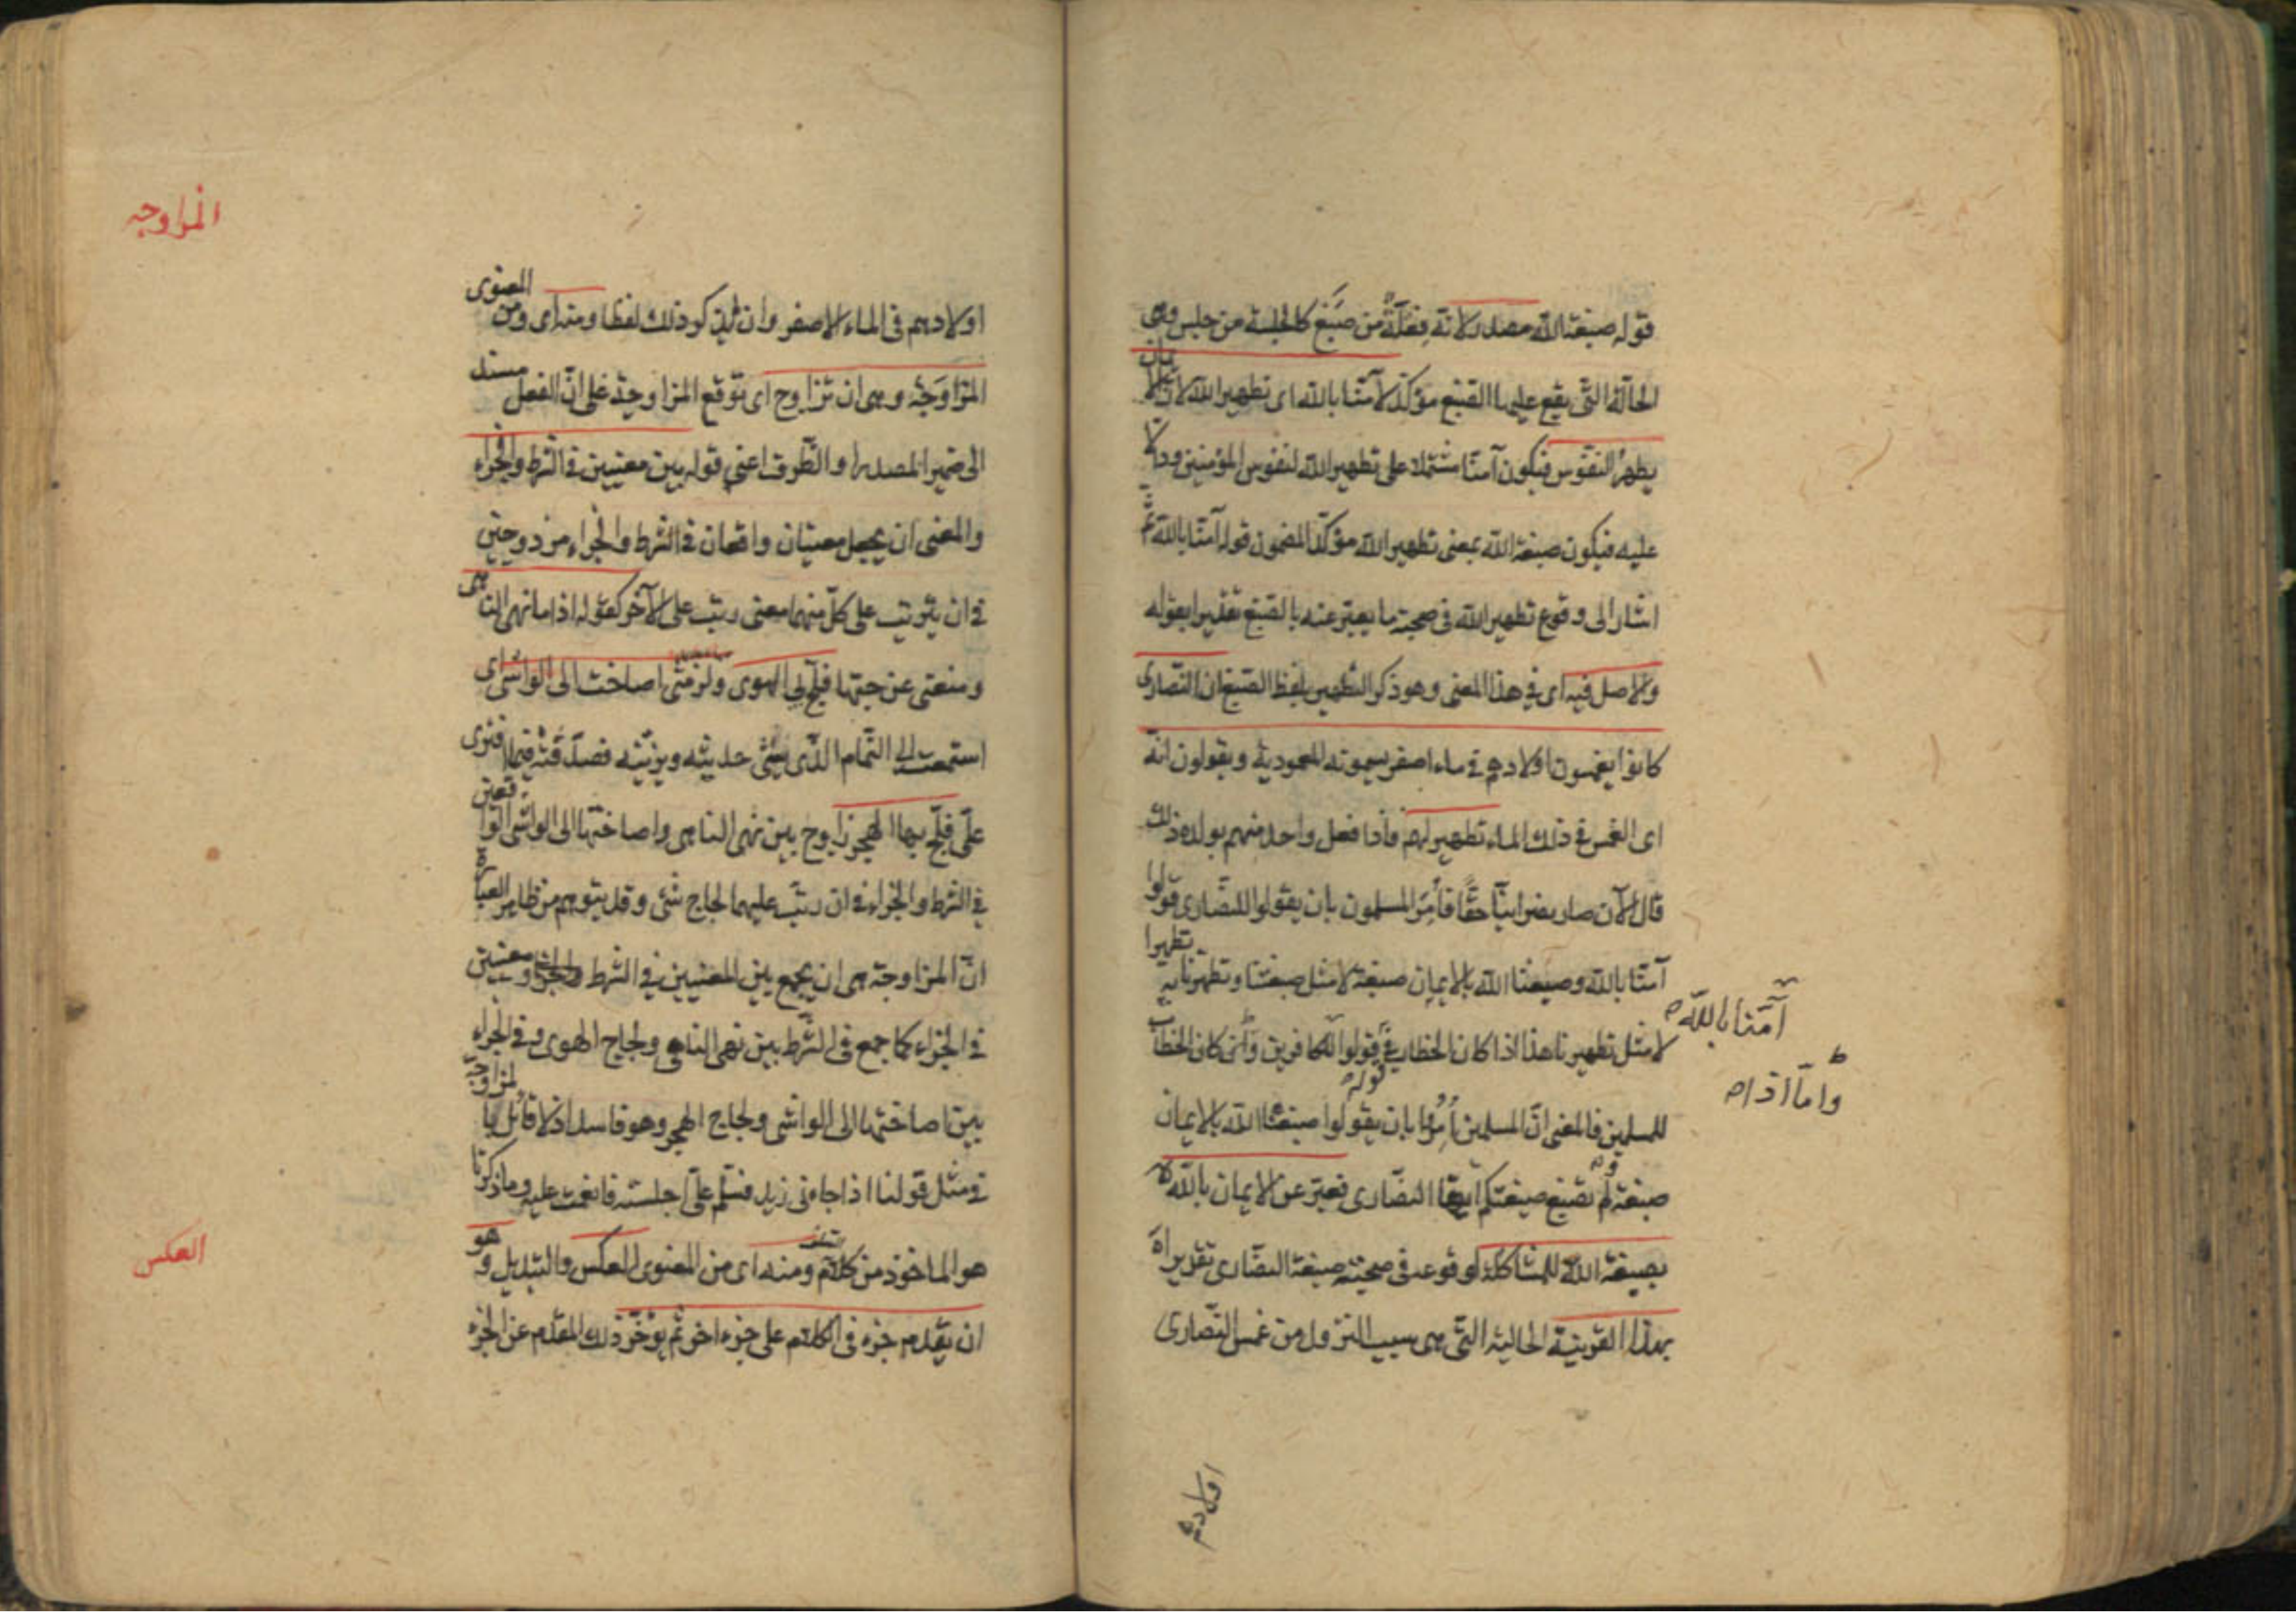 قوله صبغة الله مصدر لانه فِعْلَةٌ من صَبَغَ كالجلسة من جلس وهى
الحالة التى يقع عليها الصبغ مؤكد لآمنا بالله اى تطهير الله لان الايمان
يطهر النفوس فيكون آمنا مشتملا على تطهير الله لنفوس المؤمنين ودالا
عليه فيكون صبغة الله بمعنى تطهير الله مؤكدا لمضمون قوله آمنا بالله ثم
اشار الى وقوع تطهير الله فى صحبة ما يعبر عنه بالصبغ تقديرا بقوله
والاصل فيه اى فى هذا المعنى وهو ذكر التطهير بلفظ الصبغ ان النصارى
كانوا يغمسون اولادهم فى ماء اصفر يسمونه المعمودية ويقولون انه
اى الغمس فى ذلك الماء تطهير لهم فاذا فعل واحد منهم بولده ذلك
قال الآن صار نصرانيا حقا فأمر المسلمون بان يقولوا للنصارى قولوا
آمنا بالله وصبغنا الله بالايمان صبغة لا مثل صبغتنا وتطهرنا به تطهيرا
لا مثل تطهيرنا هذا اذا كان الخطاب فى قولوا للكافرين وان كان الخطاب
للمسلمين فالمعنى ان المسلمين أُمروا بان يقولوا صبغنا الله بالايمان
صبغة ولم نصبغ صبغتكم ايها النصارى فعبر عن الايمان بالله
بصبغة الله للمشاكلة لوقوعه فى صحبة صبغة النصارى تقديرا
بهذه القرينة الحالية التى هى سبب النزول من غمس النصارى
آمَنّا بالله
واما اذا
قوله
اولادهم
المزاوجه
اولادهم فى الماء الاصفر وان لم يذكر ذلك لفظا ومنه اى ومن المعنوى
المزاوَجة وهى ان تزاوج اى توقع المزاوجة على ان الفعل مسند
الى ضمير المصدر او الظرف اعنى قوله بين معنيين فى الشرط والجزاء
والمعنى ان يجعل معنيان واقعان فى الشرط والجزاء مزدوجين
فى ان يترتب على كل منهما معنى رتب على الآخر كقوله اذا ما نهى الناهى
ومنعنى عن حبها فلج بى الهوى ولزمنى اصاخت الى الواشى اى
استمعت الى النمام الذى يشى حديثه ويزينه فصدقته فيما افترى
على فلج بها الهجر زاوج بين نهى الناهى واصاختها الى الواشى الواقعين
فى الشرط والجزاء فى ان رتب عليهما لجاج شئ وقد يتوهم من ظاهر العبارة
ان المزاوجة هى ان يجمع بين المعنيين فى الشرط ومعنيين
فى الجزاء كما جمع فى الشرط بين نهى الناهى ولجاج الهوى وفى الجزاء
بين اصاختها الى الواشى ولجاج الهجر وهو فاسد اذ لا قائل بالمزاوجة
فى مثل قولنا اذا جاءنى زيد فسلم على اجلسته فانعمت عليه وما ذكرنا
هو الماخوذ من كلام السلف ومنه اى من المعنوى العكس والتبديل وهو
ان يقدم جزء فى الكلام على جزء اخر ثم يؤخر ذلك المقدم عن الجزء
العكس